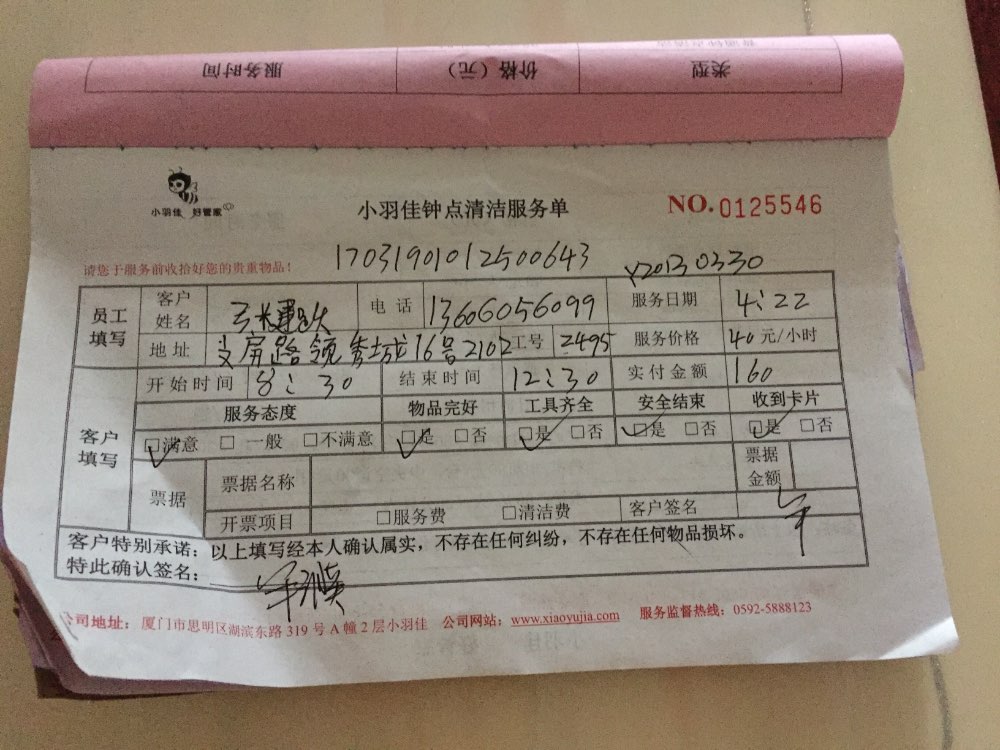 服务时间 价格（元） 类型
小羽佳 好管家
小羽佳钟点清洁服务单
NO. 0125546
17031901012500643
Y20130330
请您于服务前收拾好您的贵重物品！
员工填写 客户姓名 电话 13606056099 服务日期 4:22
地址 屏路领秀城 16号2102 工号 2495 服务价格 40 元/小时
客户填写 开始时间 8:30 结束时间 12:30 实付金额 160
服务态度 物品完好 工具齐全 安全结束 收到卡片
☑满意 □一般 □不满意 ☑是 □否 ☑是 □否 ☑是 □否 ☑是 □否
票据 票据名称 票据金额
开票项目 □服务费 □清洁费 客户签名
客户特别承诺：以上填写经本人确认属实，不存在任何纠纷，不存在任何物品损坏。
特此确认签名：
公司地址：厦门市思明区湖滨东路 319 号 A 幢 2 层小羽佳 公司网站：www.xiaoyujia.com 服务监督热线：0592-5888123